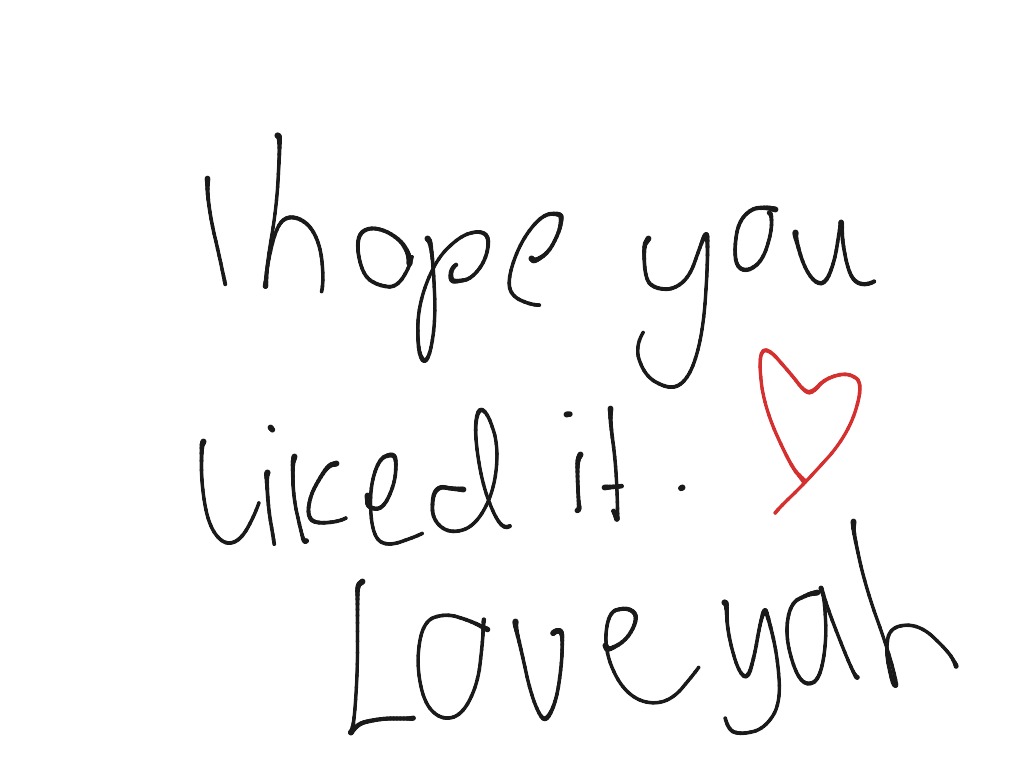 I hope you
liked it.
Love yah